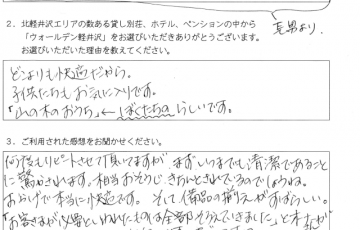 2. 北軽井沢エリアの数ある貸し別荘、ホテル、ペンションの中から
「ウォールデン軽井沢」をお選びいただきありがとうございます。
お選びいただいた理由を教えてください。
夏男より.
どこよりも快適だから。
子供たちもお気に入りです。
「山の木のおうち」← ぼくたちの らしいです。
3. ご利用された感想をお聞かせください。
何度もリピートさせて頂いてますが、まずいつまでも清潔であること
に驚かされます。相当おそうじ きちんとされているのでしょうね。
おかげで本当に快適です。そして備品の揃えがすばらしい。
「お客さまが必要といわれたものは全部そろえていきました」と